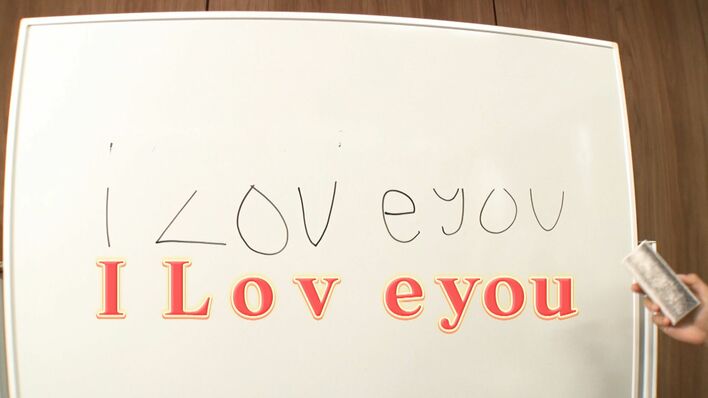 i LOV eyou
I Lov eyou